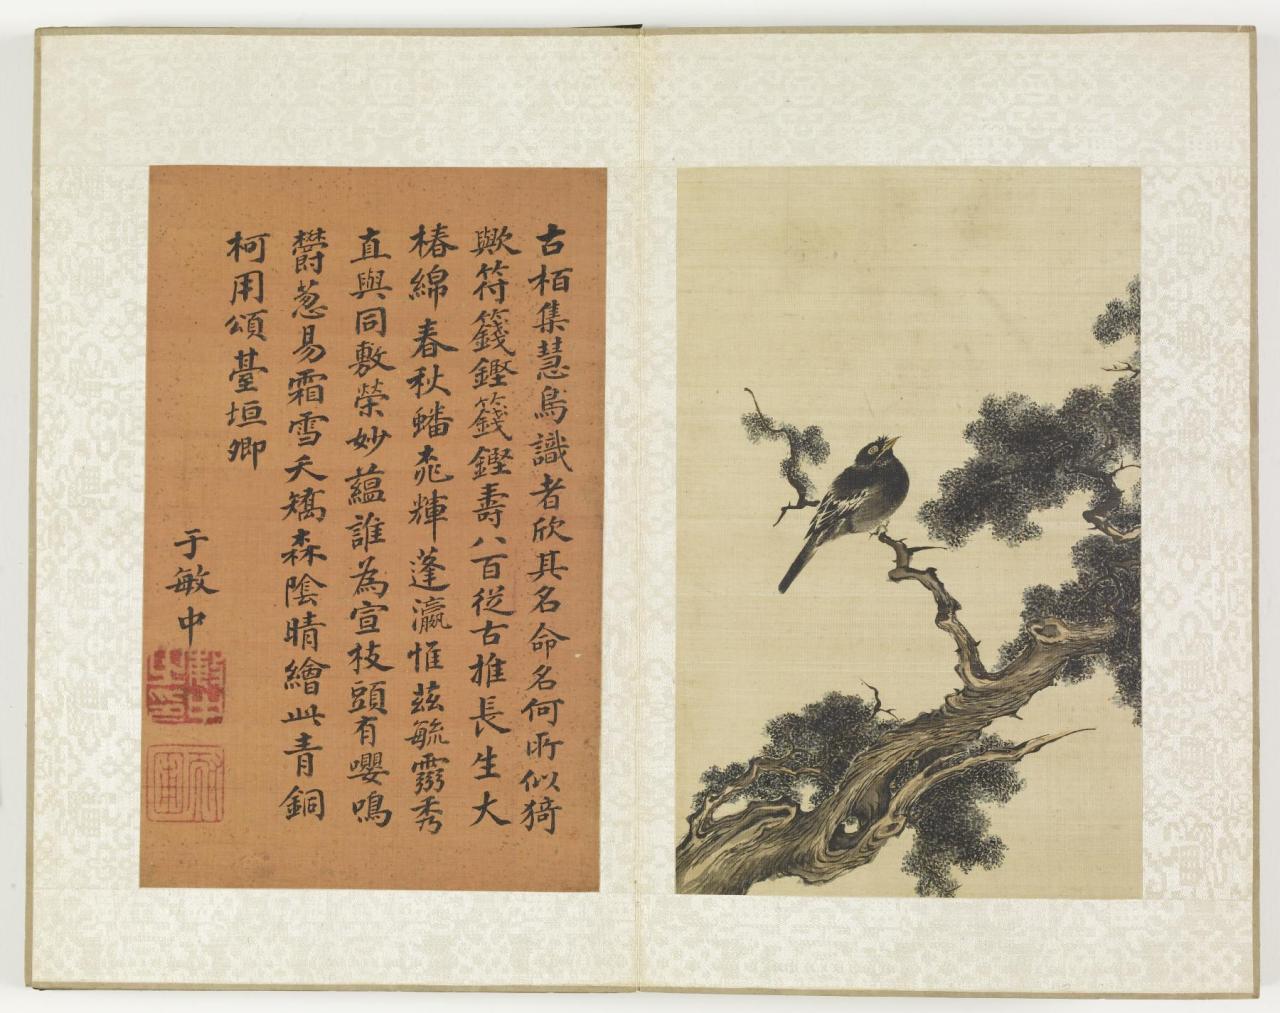 古栢集慧鳥識者欣其名命名何所似猗
歟符籛鏗籛鏗壽八百從古推長生大
椿綿春秋蟠桃輝蓬瀛惟茲毓靈秀
直與同敷榮妙蘊誰為宣枝頭有嚶鳴
欝蔥易霜雪夭矯森陰晴繪此青銅
柯用頌臺垣卿
于敏中
敏中